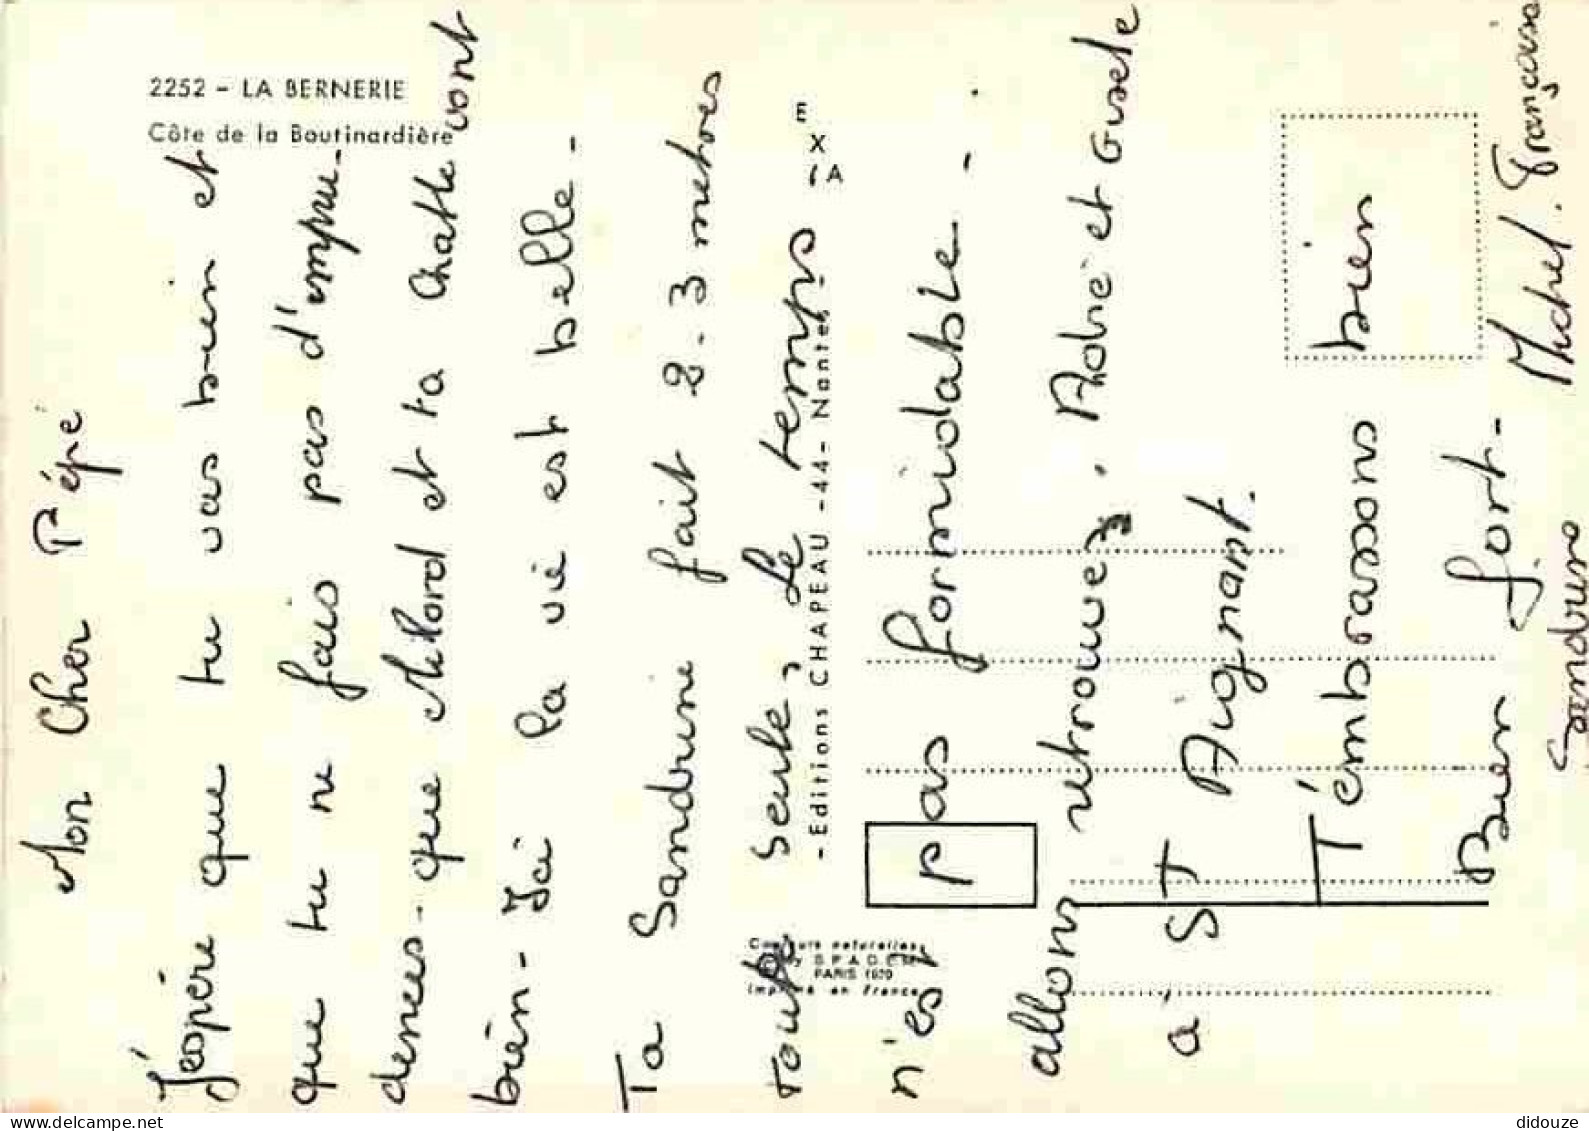 2252 - LA BERNERIE
Côte de la Boutinardière
E
X
A
- Editions CHAPEAU - 44 - Nantes -
Couleurs naturelles
by S.P.A.D.E.M.
PARIS 1970
Imprimé en France
Mon Cher Pépé
J'espère que tu vas bien et
que tu ne fais pas d'empru-
dences - que Milord et ta chatte vont
bien - Ici la vie est belle -
Ta Sandrine fait 2 - 3 mètres
toute seule, Le temps
n'est pas formidable -
allons retrouvez, André et Gisele
à ST Aignant.
T'émbrassons bien
Bien fort -
Michel. Françoise
Sandrine
www.delcampe.net
didouze